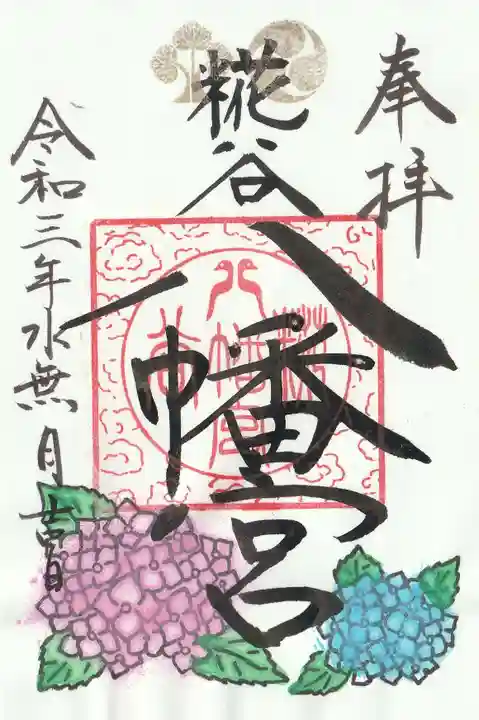 奉拝
糀谷
八幡宮
令和三年水無月